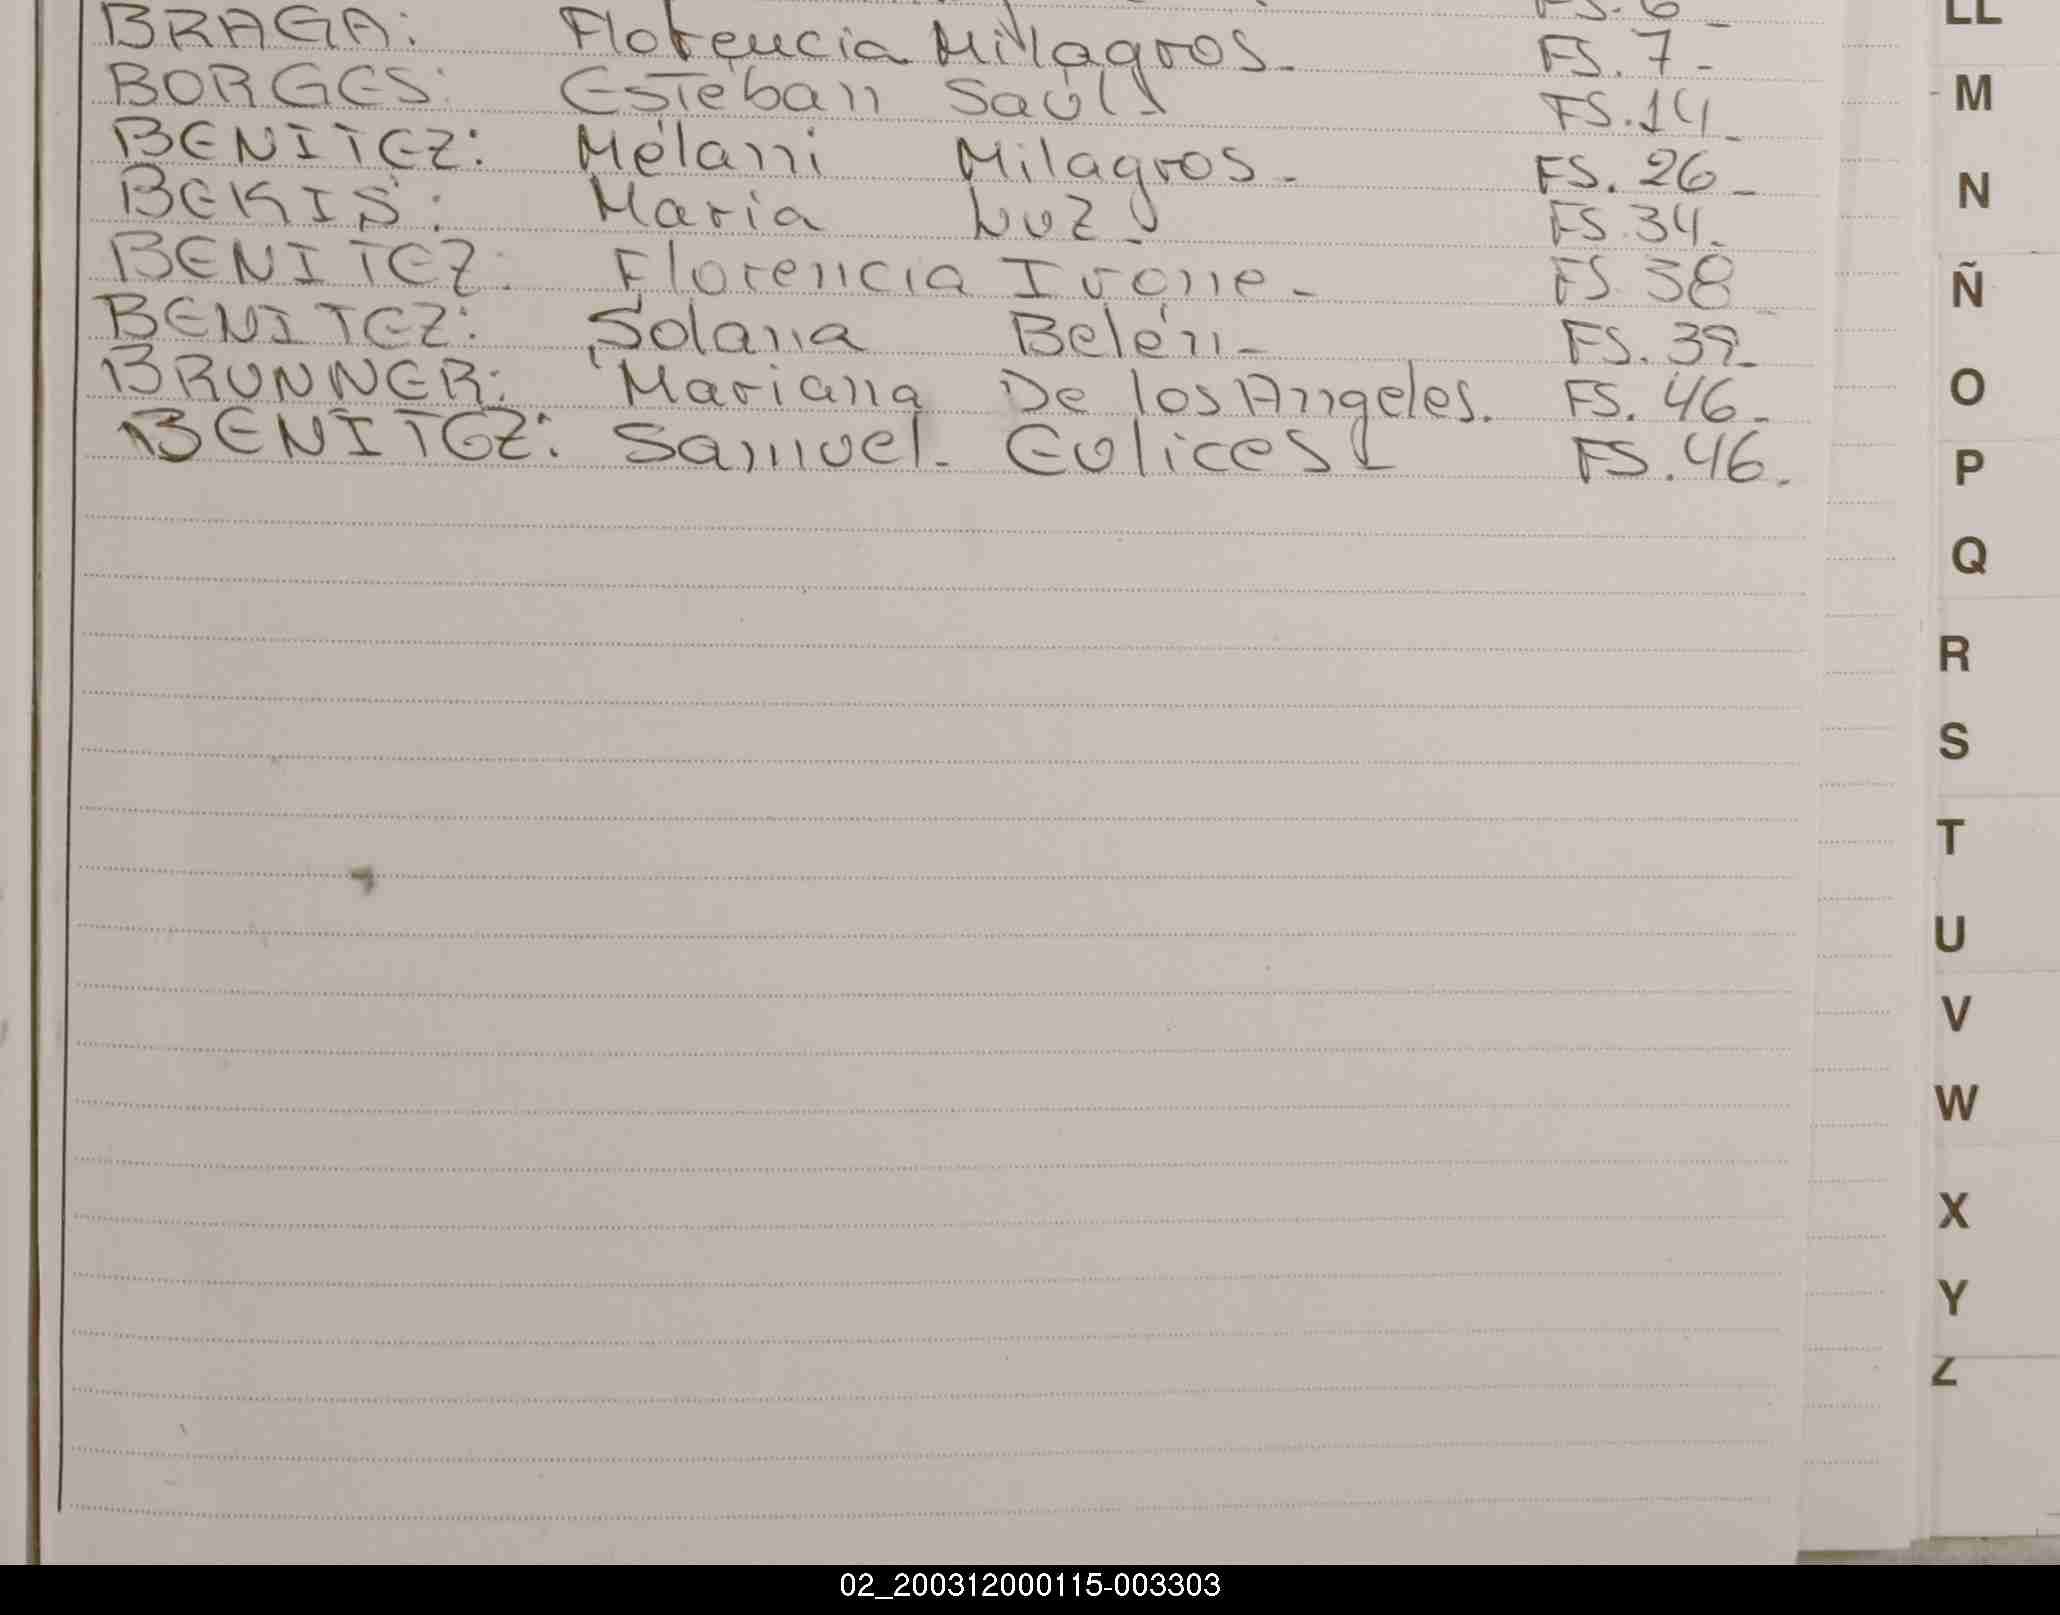 FS. 6 -
BRAGA: Florencia Milagros - FS. 7 -
BORGES: Esteban Saúl FS. 14 -
BENITEZ: Melani Milagros - FS. 26 -
BEKIS: Maria Luz - FS. 34 -
BENITEZ: Florencia Ivone - FS. 38
BENITEZ: Solana Belén - FS. 39 -
BRUNNER: Mariana De los Angeles. FS. 46 -
BENITEZ: Samuel Eulices - FS. 46 -
LL
M
N
Ñ
O
P
Q
R
S
T
U
V
W
X
Y
Z
02_200312000115-003303